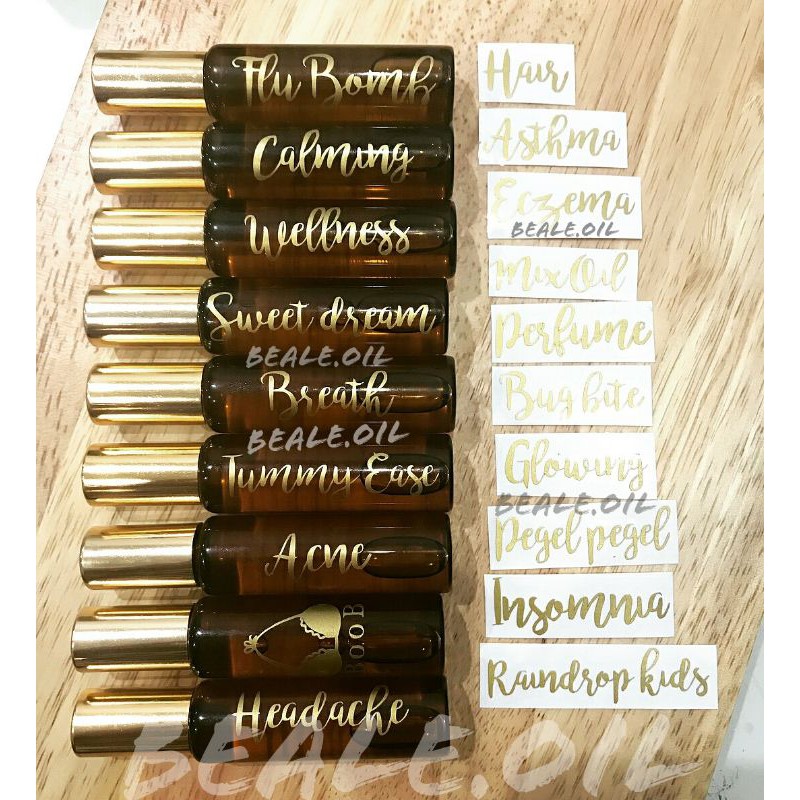 Flu Bomb
Calming
Wellness
Sweet dream
BEALE.OIL
Breath
BEALE.OIL
Tummy Ease
Acne
P.O.O.B
Headache
Hair
Asthma
Eczema
BEALE.OIL
Mix Oil
Perfume
Bug bite
Glowing
BEALE.OIL
Pegel pegel
Insomnia
Raindrop kids
BEALE.OIL